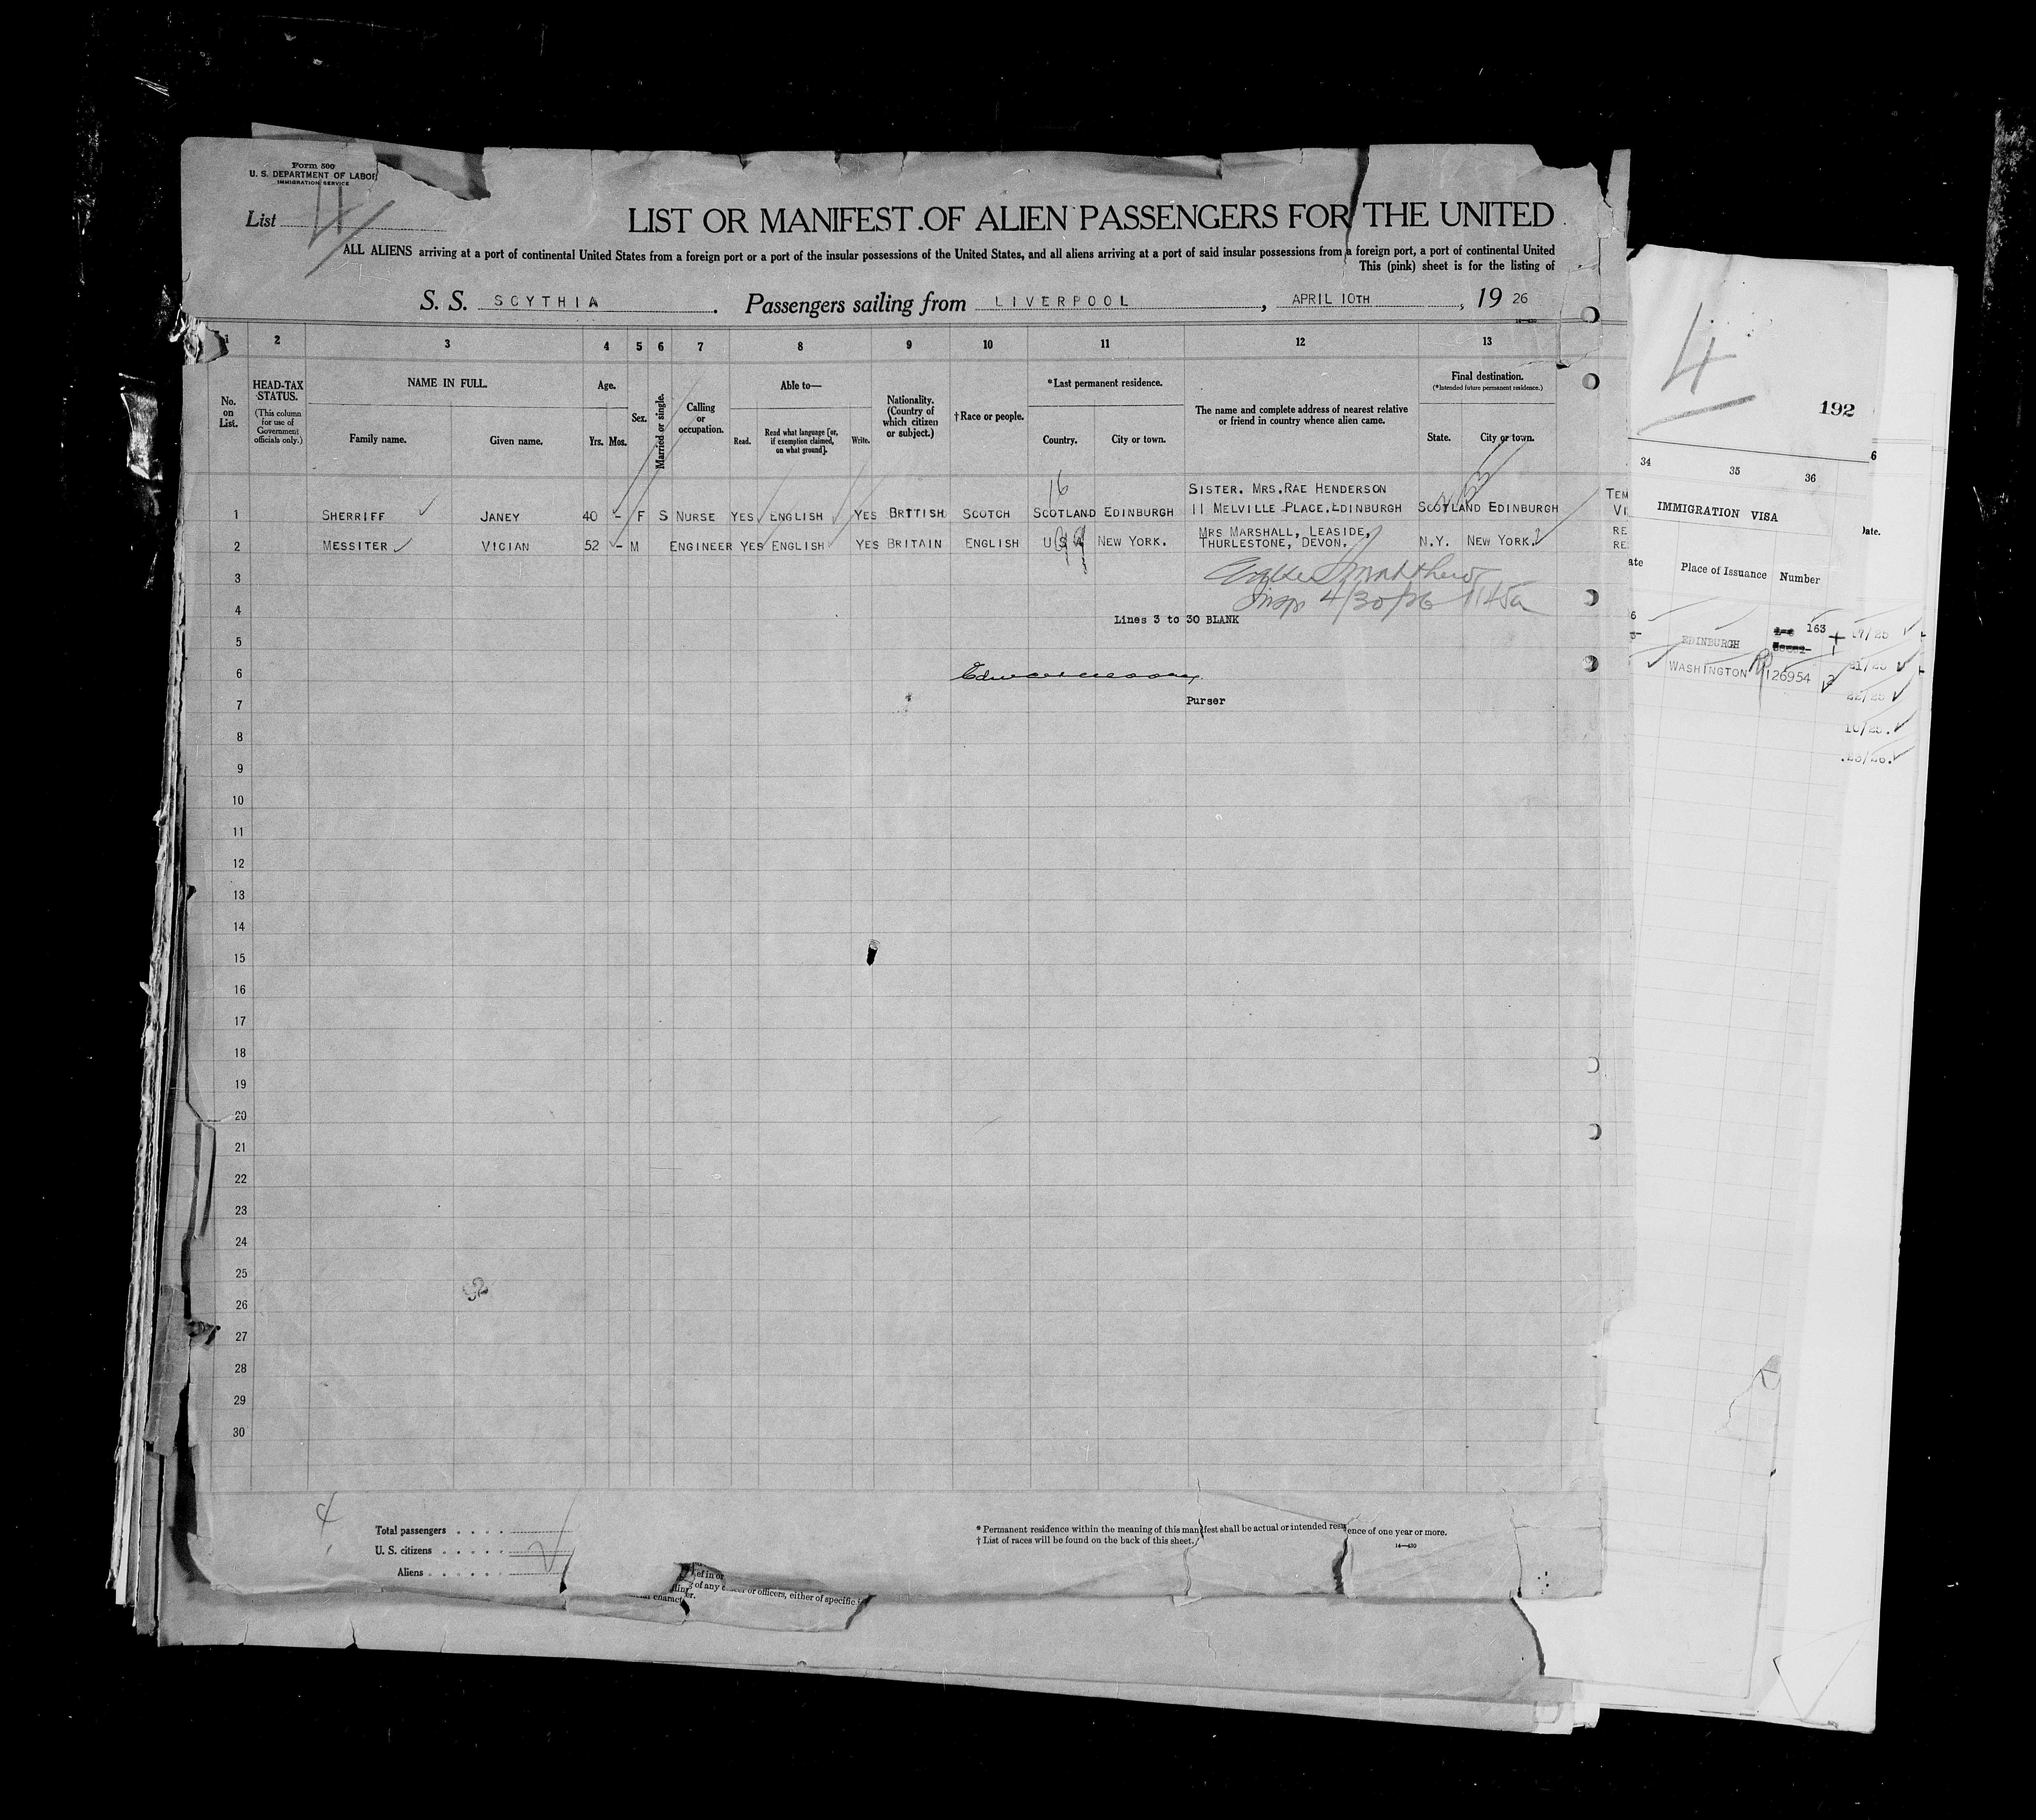 Form 500
U. S. DEPARTMENT OF LABOR
IMMIGRATION SERVICE
List 4
LIST OR MANIFEST OF ALIEN PASSENGERS FOR THE UNITED
ALL ALIENS arriving at a port of continental United States from a foreign port or a port of the insular possessions of the United States, and all aliens arriving at a port of said insular possessions from a foreign port, a port of continental United
This (pink) sheet is for the listing of
S. S. SCYTHIA. Passengers sailing from LIVERPOOL, APRIL 10TH, 19 26
1 2 3 4 5 6 7 8 9 10 11 12 13
No. on List.
HEAD-TAX STATUS.
(This column for use of Government officials only.)
NAME IN FULL.
Family name. Given name.
Age.
Yrs. Mos.
Sex.
Married or single.
Calling or occupation.
Able to—
Read. Read what language [or, if exemption claimed, on what ground]. Write.
Nationality. (Country of which citizen or subject.)
†Race or people.
*Last permanent residence.
Country. City or town.
The name and complete address of nearest relative or friend in country whence alien came.
Final destination.
(*Intended future permanent residence.)
State. City or town.
16
SISTER. MRS.RAE HENDERSON
1 SHERRIFF JANEY 40 - F S NURSE YES ENGLISH YES BRITISH SCOTCH SCOTLAND EDINBURGH 11 MELVILLE PLACE.EDINBURGH SCOTLAND EDINBURGH
MRS MARSHALL, LEASIDE,
2 MESSITER VICIAN 52 - M ENGINEER YES ENGLISH YES BRITAIN ENGLISH NEW YORK. THURLESTONE, DEVON. N.Y. NEW YORK.
3
4/30/26
4
Lines 3 to 30 BLANK
5
6
7
Purser
8
9
10
11
12
13
14
15
16
17
18
19
20
21
22
23
24
25
26
27
28
29
30
Total passengers
U. S. citizens
Aliens
* Permanent residence within the meaning of this manifest shall be actual or intended residence of one year or more.
† List of races will be found on the back of this sheet.
14—430
of any or officers, either of specific
4
192
34 35 36
IMMIGRATION VISA
Place of Issuance Number
EDINBURGH 163
WASHINGTON 126954